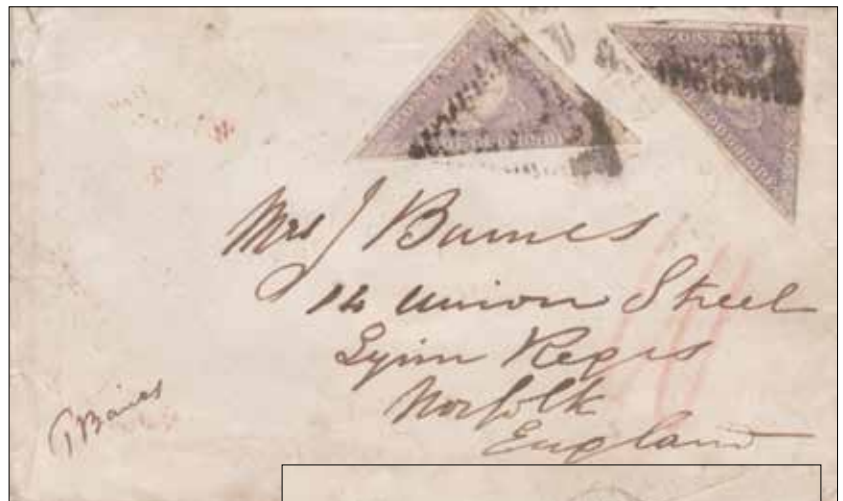 Mrs J Baines
14 Union Street
Lynn Regis
Norfolk
England
TBaines